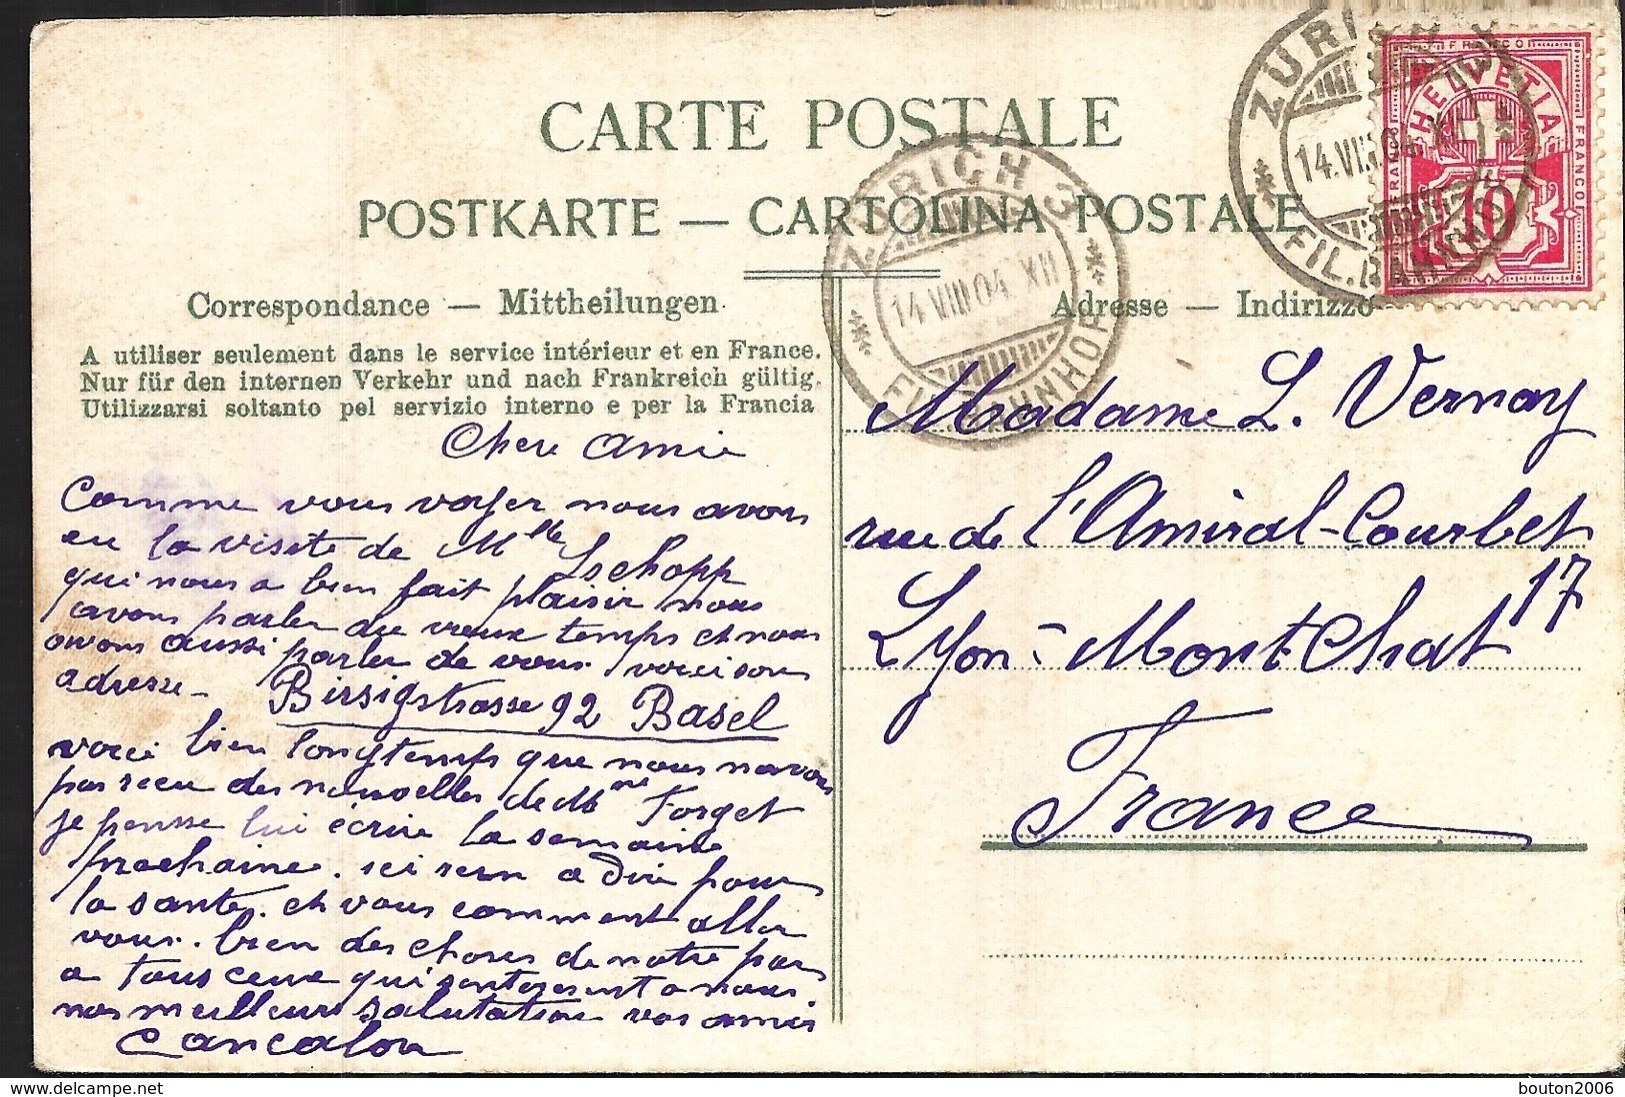 CARTE POSTALE
POSTKARTE — CARTOLINA POSTALE
Correspondance — Mittheilungen
Adresse — Indirizzo
A utiliser seulement dans le service intérieur et en France.
Nur für den internen Verkehr und nach Frankreich gültig.
Utilizzarsi soltanto pel servizio interno e per la Francia
ZÜRICH
14.VIII.04
FIL. BAHNHOF
FRANCO
HELVETIA
FRANCO
FRANCO
10
ZÜRICH 3
14.VIII.04 XII
FIL. BAHNHOF
Chere amie
Comme vous voyer nous avons
eu la visite de Mlle Tschopp
qui nous a bien fait plaisir nous
avons parler du vieux temps et nous
avons aussi parler de vous voici son
adresse - Birsigstrasse 92 Basel
voici bien longtemps que nous navons
pas recu des nouvelles de Mme Forget
je pensse lui écrire la semaine
prochaine. ici rien a dire pour
la santé. et vous comment aller
vous. bien des choses de notre par
a tous ceux qui a nous.
nos meilleurs salutation vos amis
Cancalon
Madame L. Vernay
rue de l'Amiral-Courbet
17
Lyon-Mont Chat
France
delcampe.net
bouton2006